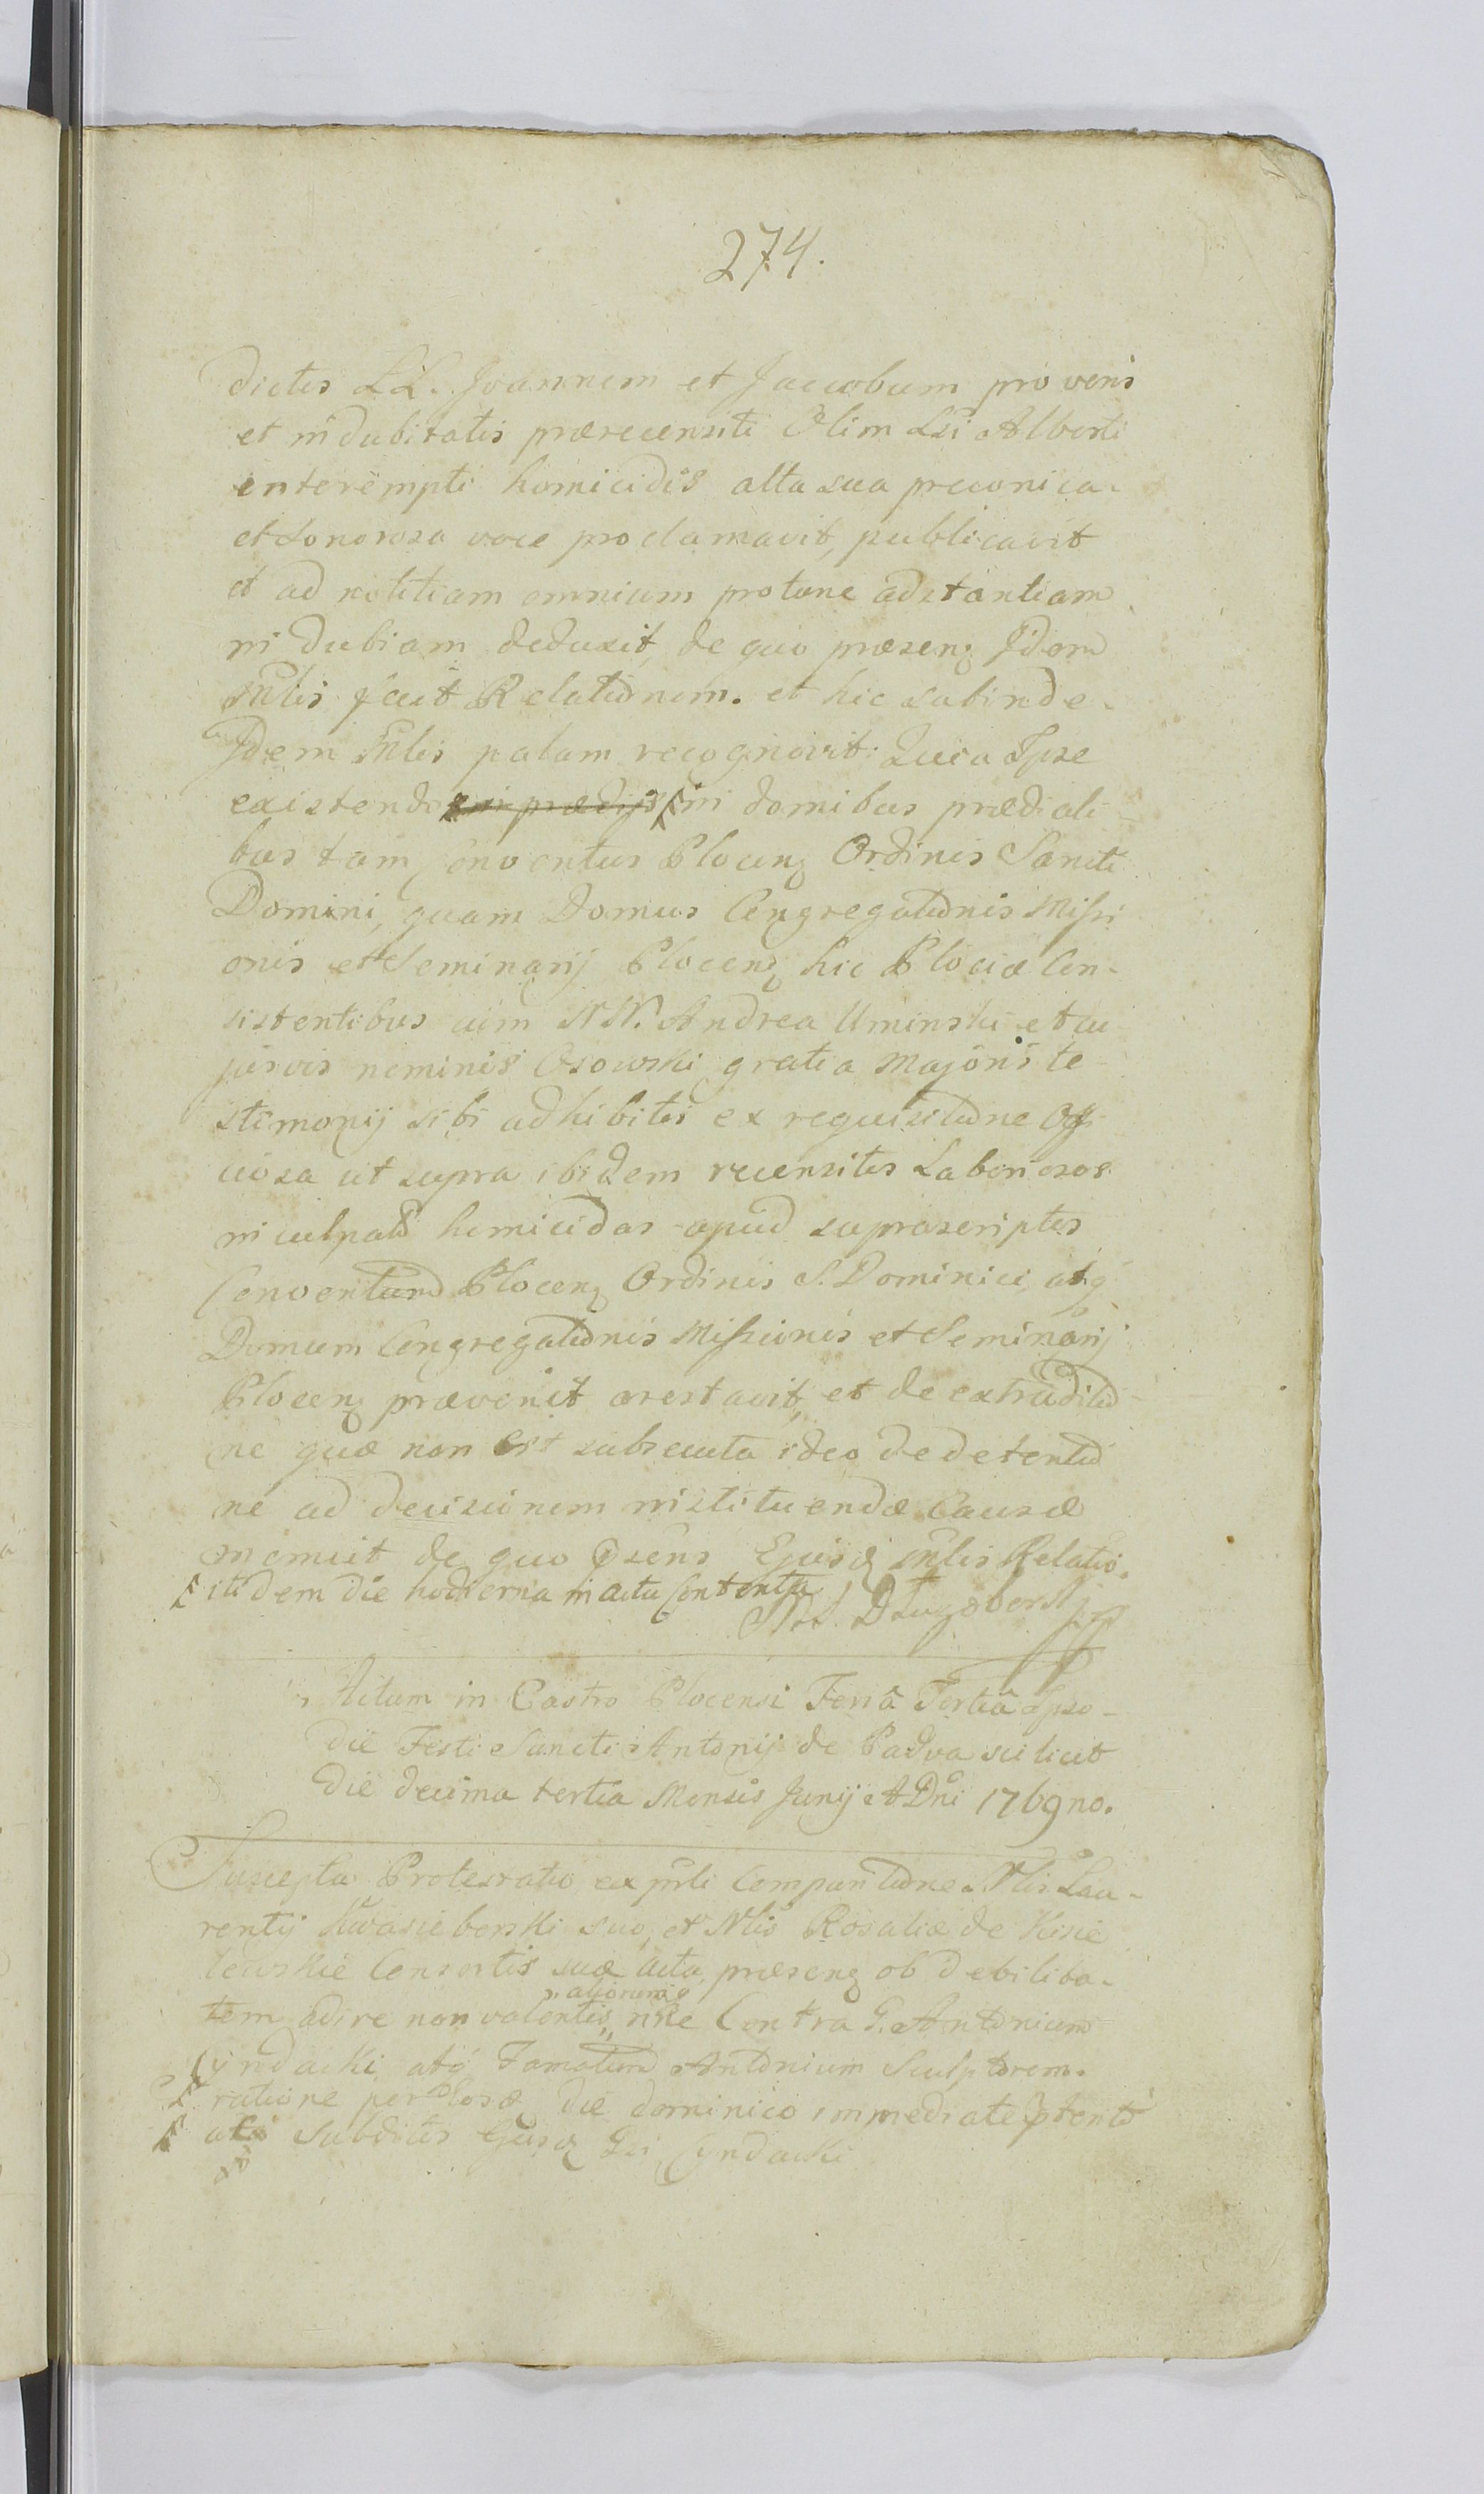 274.
dictos LL. Joannem et Jaccobum pro veris
et indubitatis prærecensiti Olim Lsi Alberti
interempti homicidis alta sua preconica
et sonorosa voce proclamavit, publicavit
et ad notitiam omnium protunc adstantium
indubiam deduxit, de quo præsenz Idem
Mlis fecit Relationem. et hic subinde
Idem Mlis palam recognovit: Quia Ipse
existendo in prædijs in domibus prædiali
bus tam Conventus Plocenz Ordinis Sancti
Domini, quam Domus Congregationis Missi
onis et Seminarij Plocenz hic Plociæ Con-
sistentibus cum NN. Andrea Uminski et cu
jusvis nominis Osowski gratia Majoris te
stimonij sibi adhibitis ex requisitione Offi
ciosa ut supra ibidem recensitos Laboriosos
inculpatos homicidas apud suprascriptos
Conventum Plocenz Ordinis S. Dominici, atq
Domum Congregationis Missionis et Seminarij
Plocenz prævenit arestavit, et de extraditio
ne quæ non est subsecuta ideo de detentio
ne ad decisionem instituendæ Causæ
monuit de quo Psens Ejusd Mlis Relatio.
itidem die hodierna in actu Contenta
Actum in Castro Plocensi Feria Tertia Ipso
die Festi Sancti Antonij de Padva scilicet
die decima tertia Mensis Junij A Dni 1769no.
Suscepta Protestatio ex psnli Comparitione Nlis Lau-
rentij Kwasieborski suo, et Nlis Rosaliæ de Kisie
lewskie Consortis suæ acta præsenz ob debilita-
tem adire non valentis, aliorumq nne Contra G. Antonium
Cyndacki atq Famatum Antonium Sculptorem.
ratione per Illos die dominico immediate Ptento
ac subditos Ejusd Gsi Cyndacki